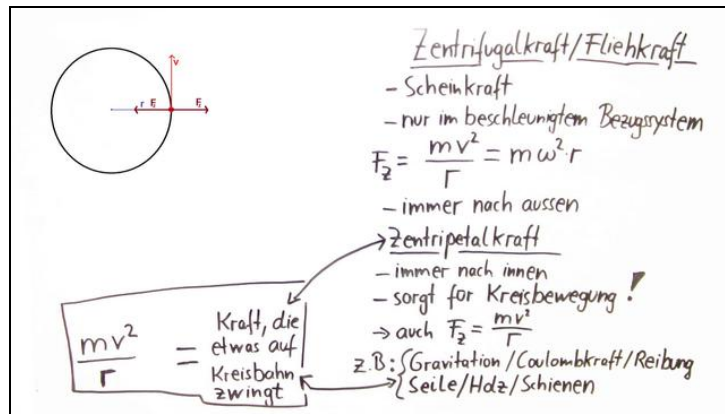 v
r
Zentrifugalkraft/Fliehkraft
- Scheinkraft
- nur im beschleunigtem Bezugssystem
F_z = mv²/r = mω²·r
- immer nach aussen
→ Zentripetalkraft
- immer nach innen
- sorgt for Kreisbewegung!
→ auch F_z = mv²/r
z.B: {Gravitation/Coulombkraft/Reibung
{Seile/Holz/Schienen
mv²/r = Kraft, die
etwas auf
Kreisbahn
zwingt